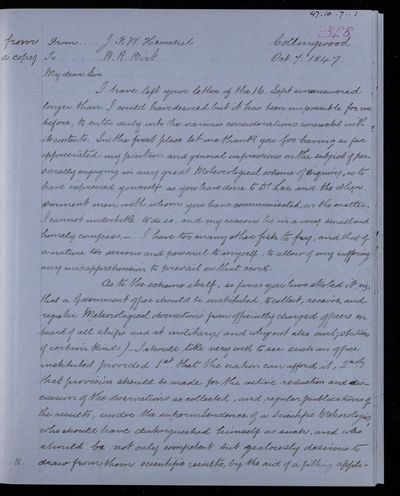 47.10.7..1
328
from From . . . J. F. W. Herschel Collingwood
a copy To . . . . W. R. Birt Oct 7. 1847
My dear Sir
I have left your letter of the 16. Sept unanswered
longer than I could have desired but it has been impossible for me
before, to enter duly into the various considerations connected with
its contents. In the first place let me thank you for having so far
appreciated my position and general impressions on the subject of per-
sonally engaging in any great Meteorological scheme of enquiry, as to
have expressed yourself as you have done to Dr. Lee and the other
eminent men with whom you have communicated on the matter.
I cannot undertake to do so, and my reasons lie in a very small and
homely compass. — I have too many other fish to fry, and that of
a nature too serious and personal to myself, to allow of my suffering
any misapprehension to prevail on that score.
As to the scheme itself, so far as you have stated it viz,
that a Government office should be instituted, to collect, receive, and
register Meteorological observations from officially charged officers on
board of all ships and at military (and why not also civil) stations
of certain kinds) — I should like very well to see such an office
instituted provided 1st that the nation can afford it, 2ndly
that provision should be made for the active reduction and dis-
cussion of the observations so collected, and regular publication of
the results, under the superintendence of a Scientific Meteorologist,
who should have distinguished himself as such, and who
should be not only competent but zealously desirous to
draw from them scientific results, by the aid of a fitting appli-